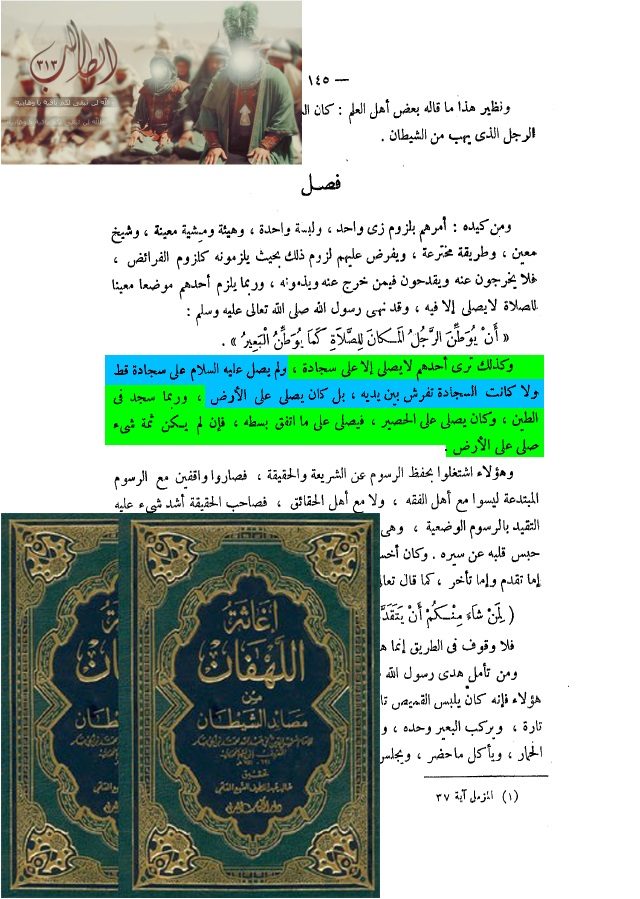 الطالب ٣١٣
— ١٤٥
ونظير هذا ما قاله بعض أهل العلم : كان
الرجل الذى يهب من الشيطان .
فصل
ومن كيده : أمرهم بلزوم زى واحد ، ولبسة واحدة ، وهيئة ومشية معينة ، وشيخ
معين ، وطريقة مخترعة ، ويفرض عليهم لزوم ذلك بحيث يلزمونه كلزوم الفرائض ،
فلا يخرجون عنه ويقدحون فيمن خرج عنه ويذمونه ، وربما يلزم أحدهم موضعا معينا
للصلاة لايصلى إلا فيه ، وقد نهى رسول الله صلى الله تعالى عليه وسلم :
« أَنْ يُوَطِّنَ الرَّجُلُ المَكانَ لِلصَّلاَةِ كَمَا يُوَطِّنُ الْبَعِيرُ » .
وكذلك ترى أحدهم لايصلى إلا على سجادة ، ولم يصل عليه السلام على سجادة قط
ولا كانت السجادة تفرش بين يديه ، بل كان يصلى على الأرض ، وربما سجد فى
الطين ، وكان يصلى على الحصير ، فيصلى على ما اتفق بسطه ، فإن لم يكن ثمة شىء
صلى على الأرض .
وهؤلاء اشتغلوا بحفظ الرسوم عن الشريعة والحقيقة ، فصاروا واقفين مع الرسوم
المبتدعة ليسوا مع أهل الفقه ، ولا مع أهل الحقائق ، فصاحب الحقيقة أشد شىء عليه
التقيد بالرسوم الوضعية ، وهى
حبس قلبه عن سيره . وكان أخس
إما تقدم وإما تأخر ، كما قال تعال
( لِمَنْ شَاءَ مِنْكُمْ أَنْ يَتَقَدَّ
فلا وقوف فى الطريق إنما ه
ومن تأمل هدى رسول الله
هؤلاء فإنه كان يلبس القميص تا
تارة ، ويركب البعير وحده ، و
الحمار ، ويأكل ما حضر ، ويجلس
(١) المزمل آية ٣٧
إغاثة
اللهفان
من
مصائد الشيطان